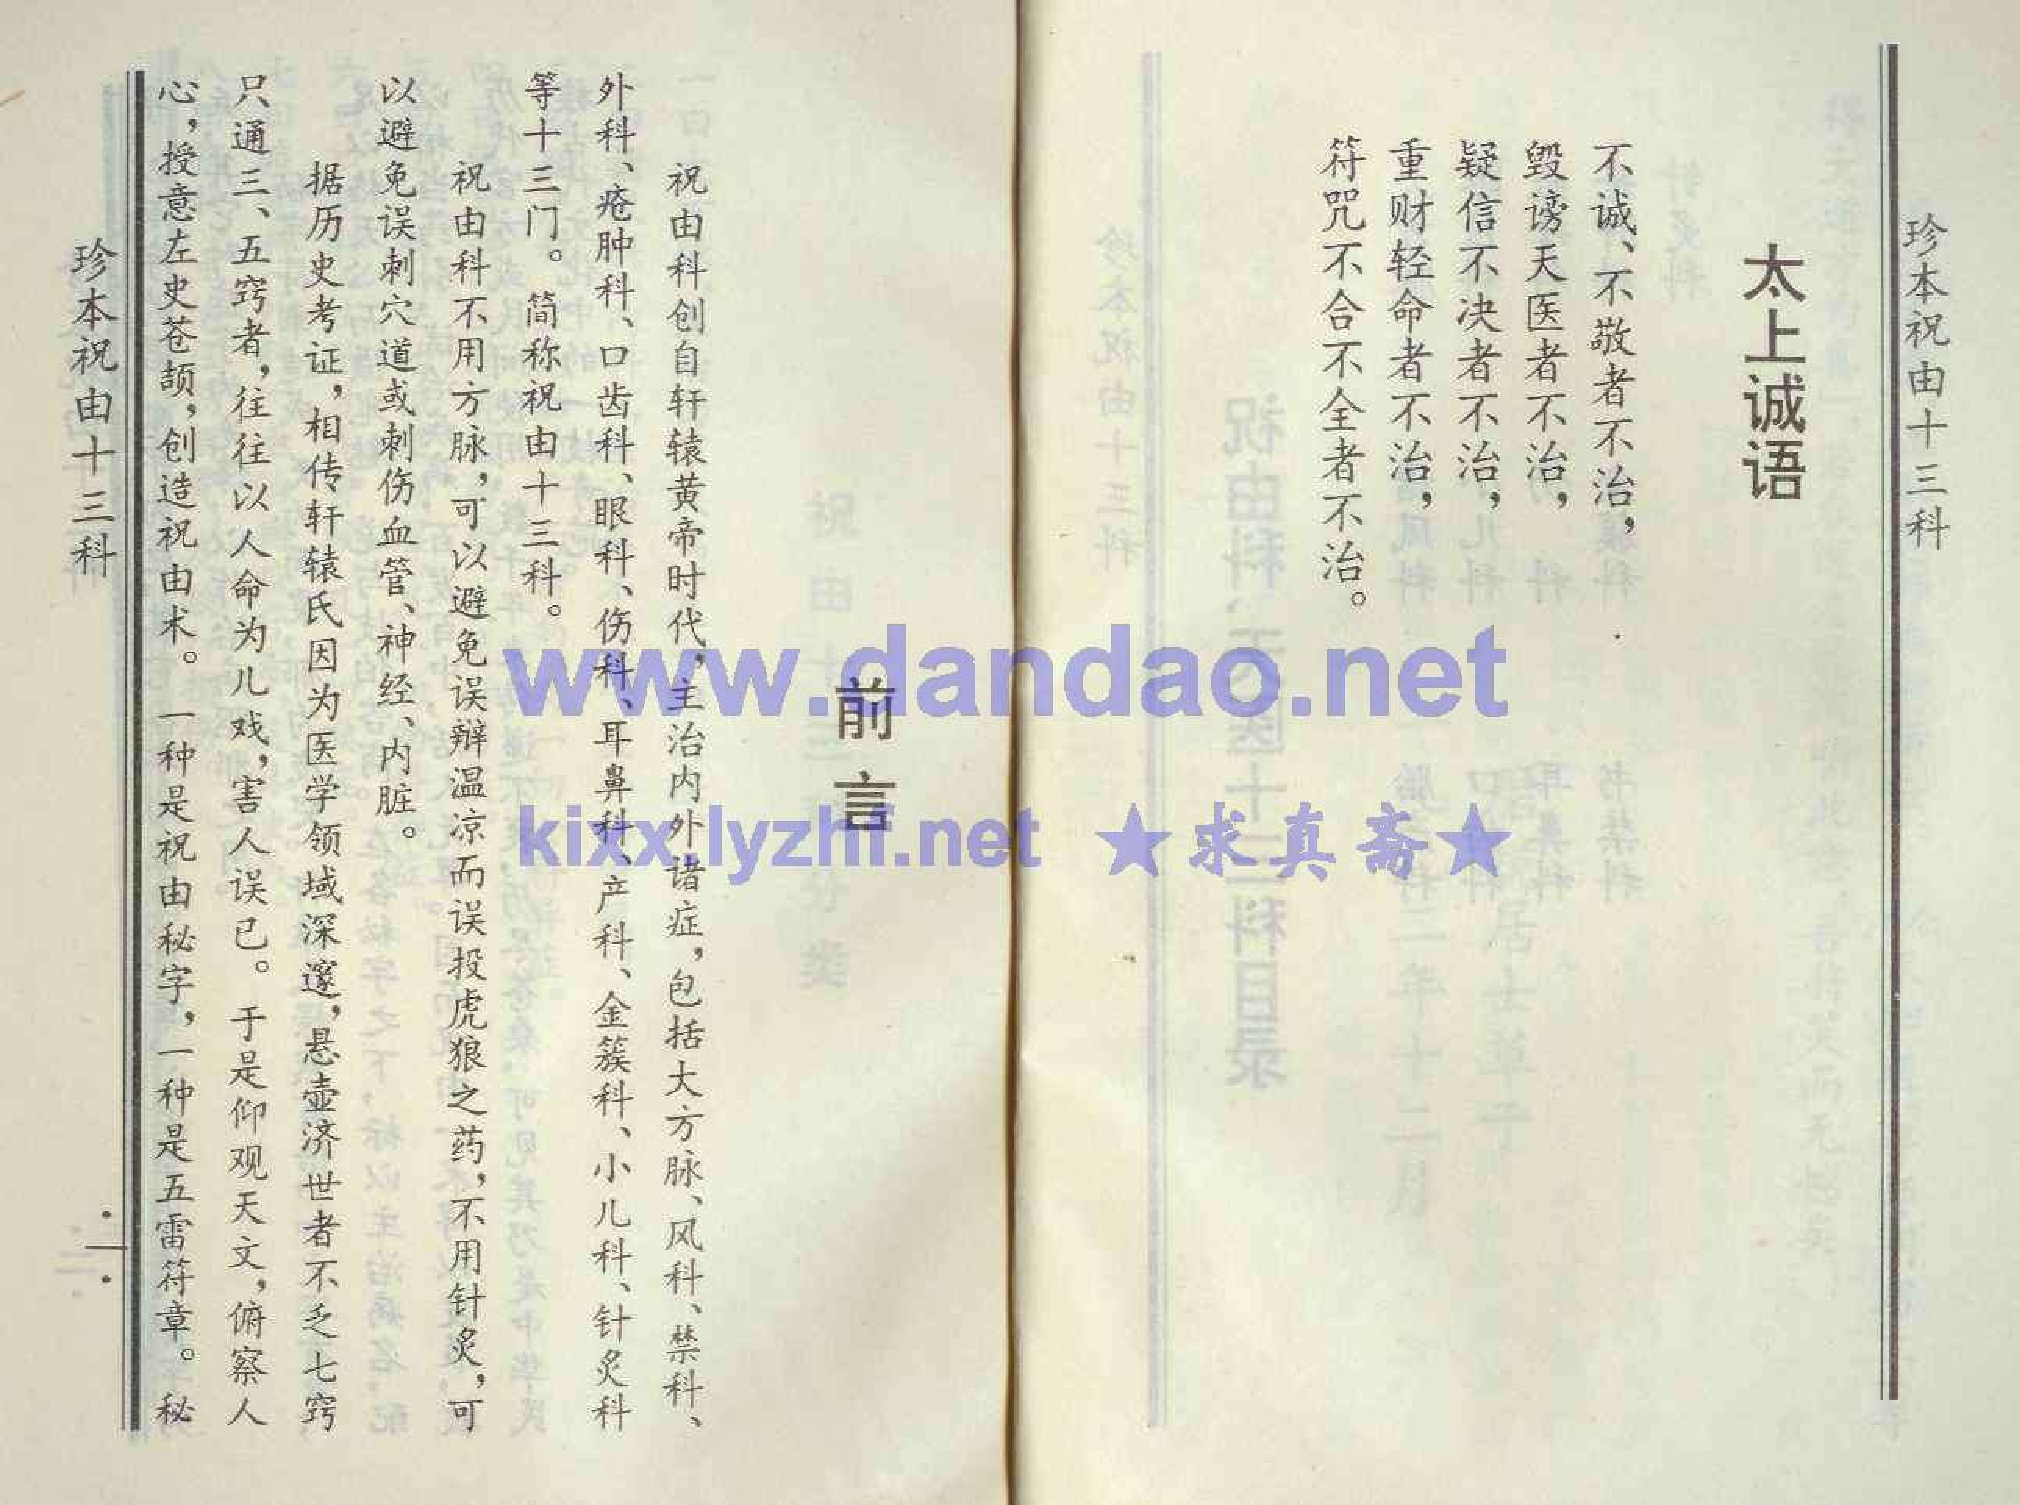 珍本祝由十三科
太上诚语
不诚、不敬者不治，
毁谤天医者不治，
疑信不决者不治，
重财轻命者不治，
符咒不合不全者不治。
前言
祝由科创自轩辕黄帝时代，主治内外诸症，包括大方脉、风科、禁科、
外科、疮肿科、口齿科、眼科、伤科、耳鼻科、产科、金簇科、小儿科、针炙科
等十三门。简称祝由十三科。
祝由科不用方脉，可以避免误辩温凉而误投虎狼之药，不用针炙，可
以避免误刺穴道或刺伤血管、神经、内脏。
据历史考证，相传轩辕氏因为医学领域深邃，悬壶济世者不乏七窍
只通三、五窍者，往往以人命为儿戏，害人误已。于是仰观天文，俯察人
心，授意左史苍颉，创造祝由术。一种是祝由秘字，一种是五雷符章。秘
珍本祝由十三科
·一·
www.dandao.net
kixx.lyzhl.net ★求真斋★